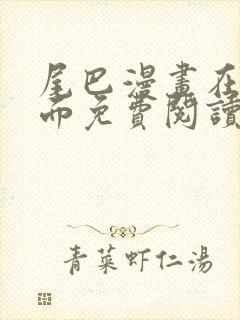 尾巴漫畫在
而免費閱讀
青菜虾仁湯